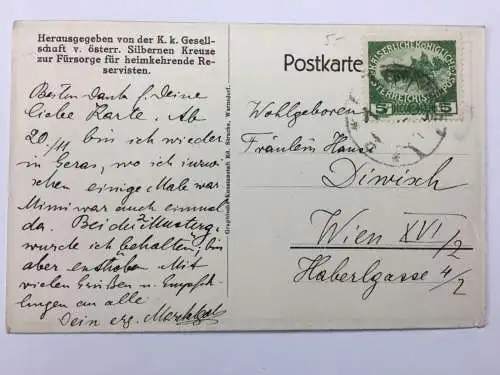 Herausgegeben von der K. k. Gesell-
schaft v. österr. Silbernen Kreuze
zur Fürsorge für heimkehrende Re-
servisten.
Besten Dank f. Deine
liebe Karte. Ab
20./11 bin ich wieder
in Geras, wo ich inzwi-
schen einige Male war
Mimi war auch einmal
da. Bei der Musterg.
wurde ich behalten, bin
aber enthoben. Mit
vielen Grüßen u. Empfeh-
lungen an alle
Dein erg.
Graphische Kunstanstalt Ed. Strache, Warnsdorf.
5.-
Postkarte
KAISERLICHE KÖNIGLICHE
ÖSTERREICHISCHE POST
5 5
Wohlgeboren
Fräulein
Diwisch
Wien XVI/2
Haberlgasse 4/2